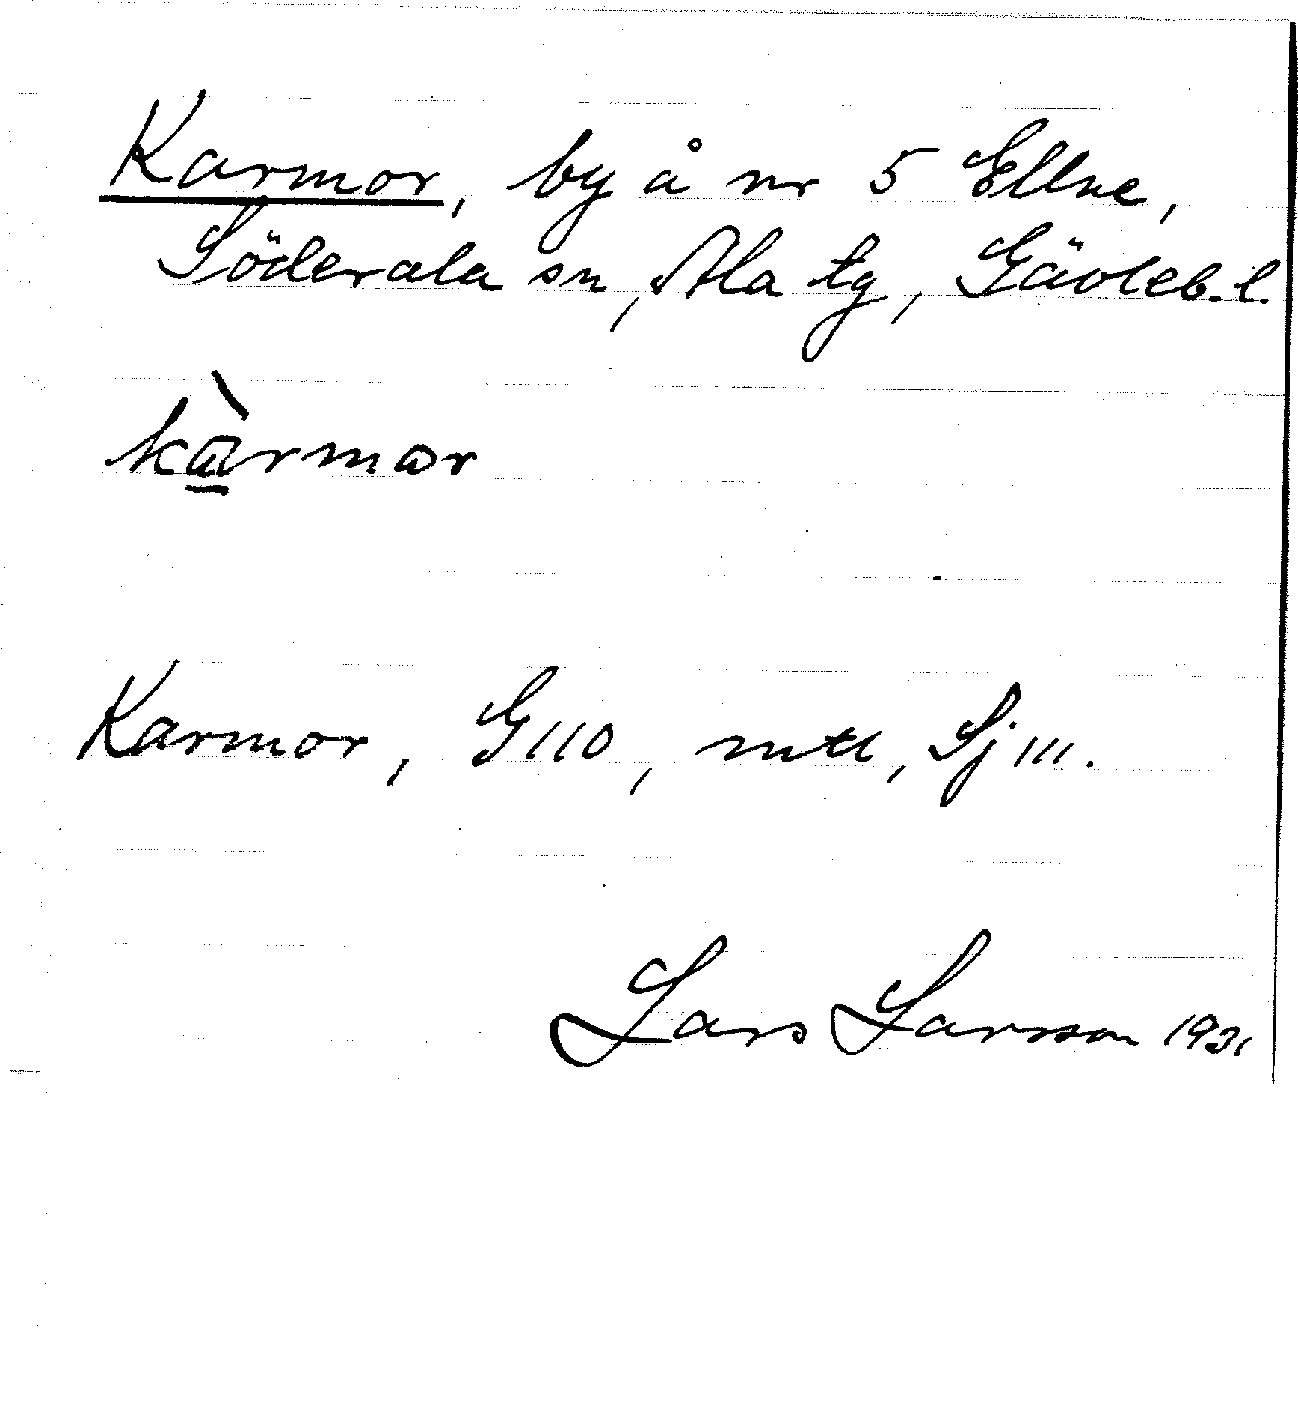 Karmor, by å nr 5 Ellne,
Söderala sn, Ala tg, Gävleb. l.
kàrmor
Karmor, G 110, mtl, Sj III.
Lars Larsson 1931